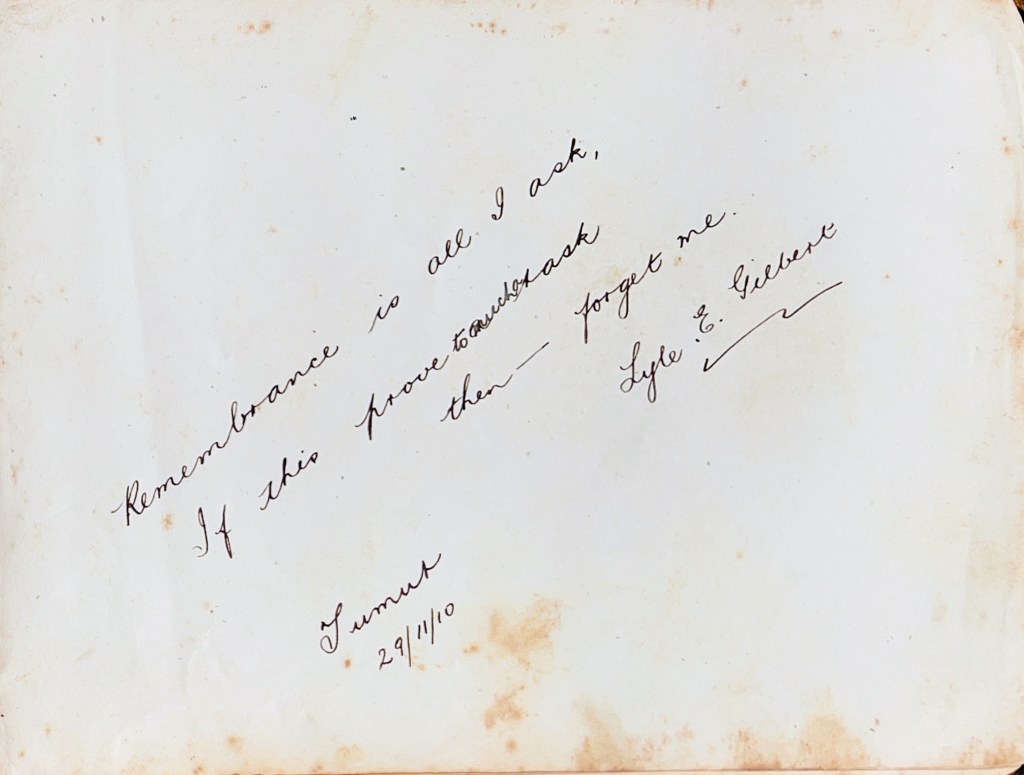 Remembrance is all I ask,
If this prove to much to ask
then — forget me.
Lyle. E. Gilbert
Tumut
29/11/10